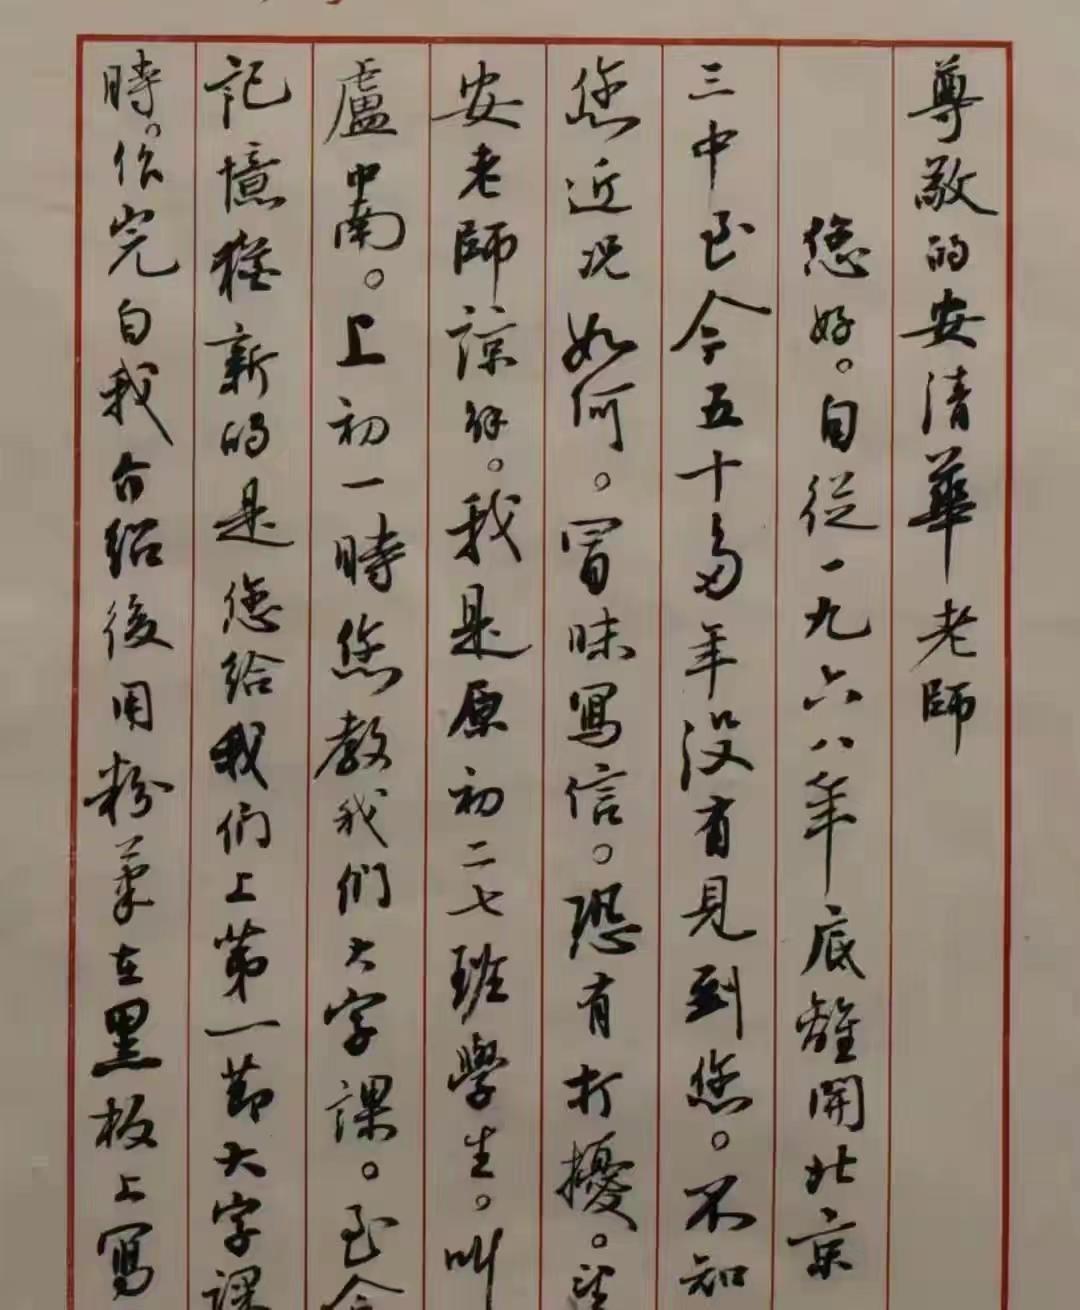 尊敬的安清華老師
您好。自從一九六八年底離開北京
三中至今五十多年没有見到您。不知
您近况如何。冒昧寫信。恐有打擾。望
安老師諒解。我是原初二七班學生。叫
盧中南。上初一時您教我們大字課。至今
記憶猶新的是您給我們上第一節大字課
時。作完自我介紹後用粉筆在黑板上寫